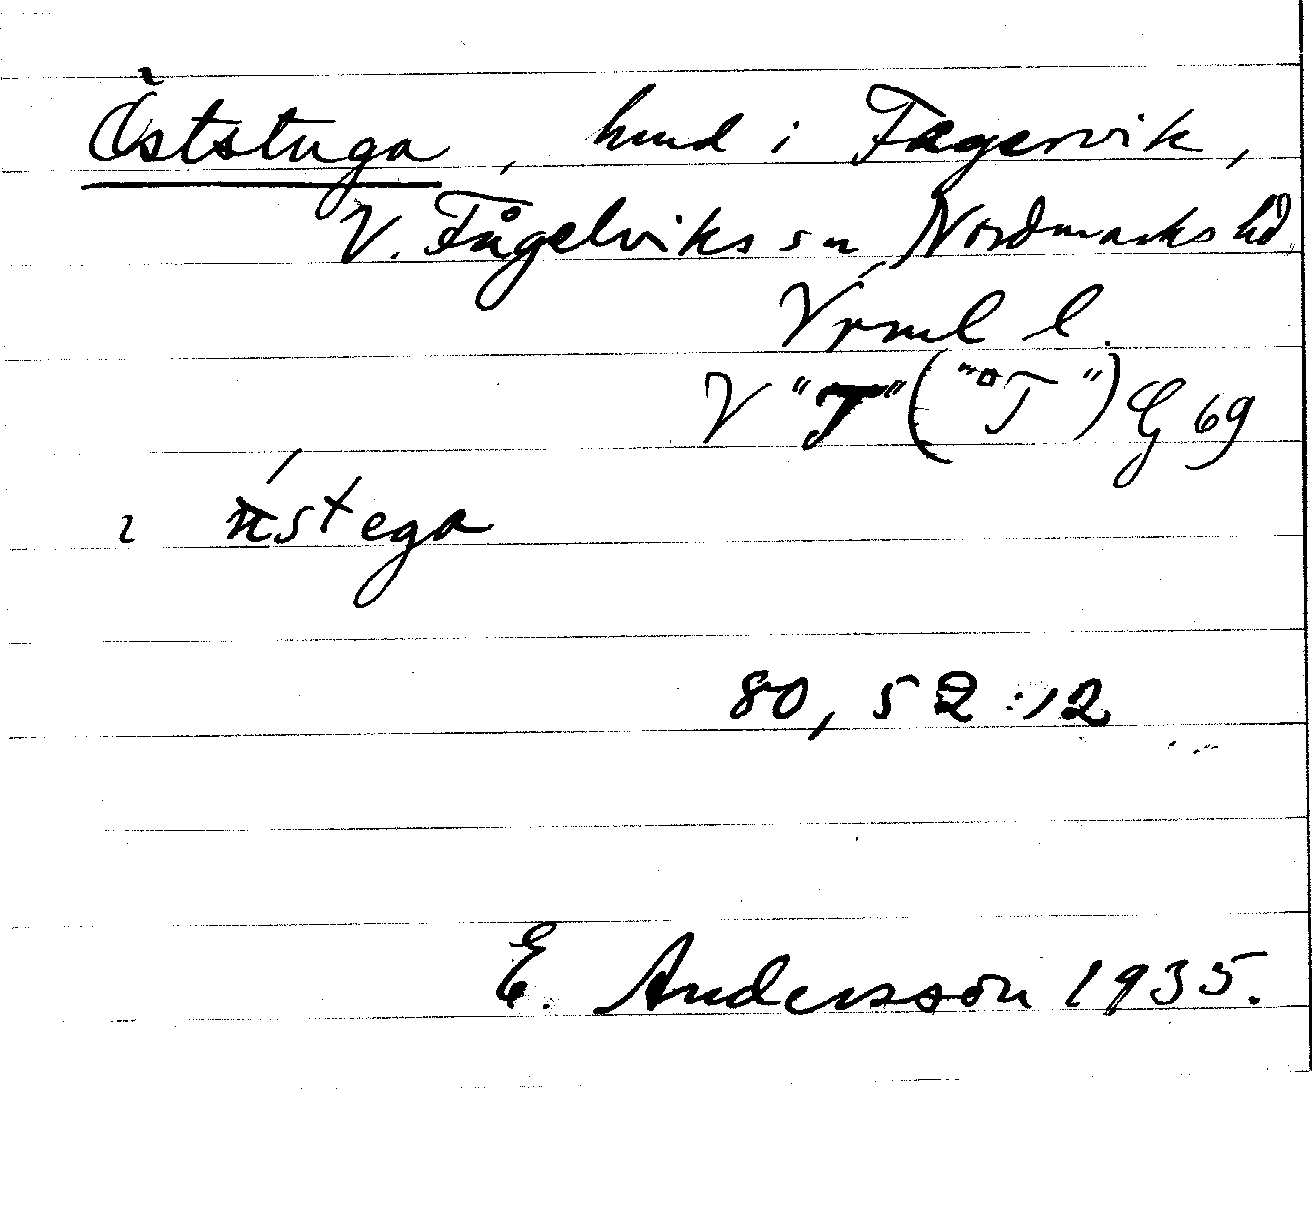 Öststuga, hmd i Fagervik,
V. Fågelviks sn, Nordmarks hd
Vrml l.
V "T" ("T") G 69
ı ństega
80, 52:12
E. Andersson 1935.